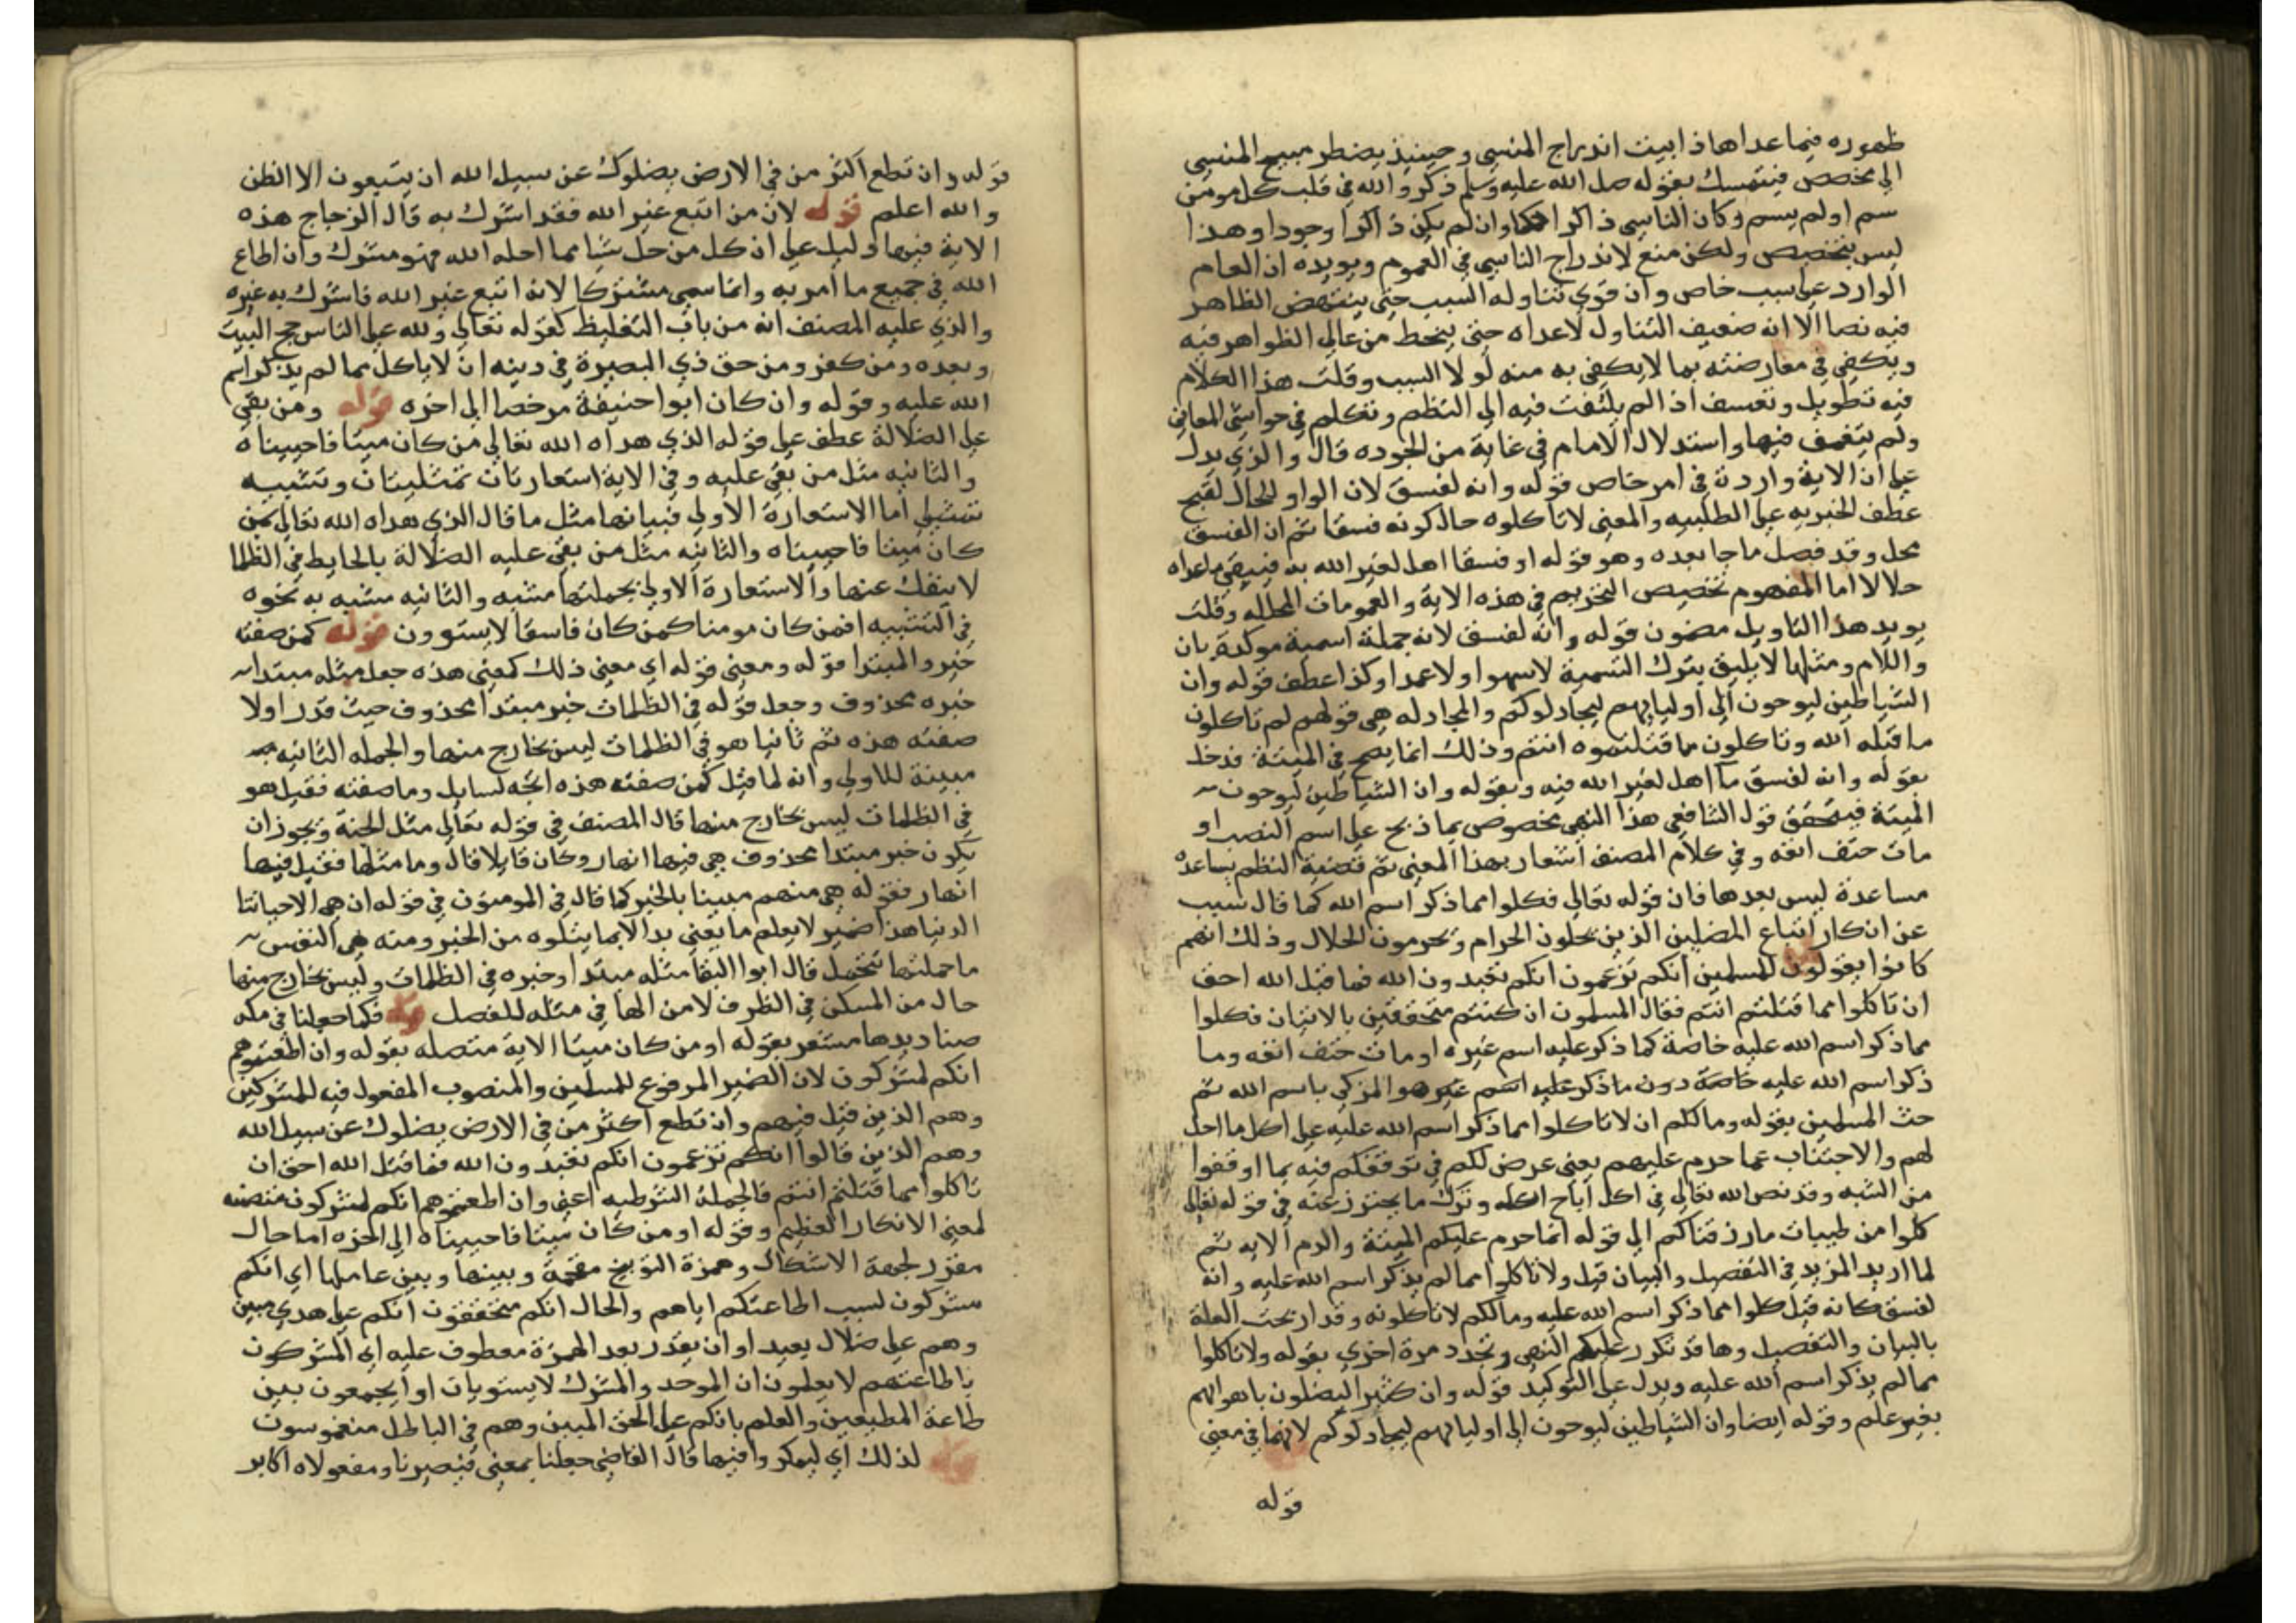 ظهوره فيما عداها ذا ابيت اندراج المنسي وحينيذ يضطر مبيح المنسي
الي مخصص فيتمسك بقوله صل الله عليه وسلم ذكر والله في قلب كل مومن
سم او لم يسم وكان الناسي ذاكرا حكما وان لم يكن ذاكرا وجودا وهذا
ليس بتخصيص ولكن منع لاندراج الناسي في العموم ويويده ان العام
الوارد علي سبب خاص وان قوي تناوله السبب حتي ينتهض الظاهر
فيه نصا الا انه ضعيف التناول لاعداه حتي ينحط من عالي الظواهر فيه
ويكفي في معارضته بما لا يكفي به منه لولا السبب وقلت هذا الكلام
فيه تطويل وتعسف اذ الم يلتفت فيه الي النظم وتكلم في حواشي المعاني
ولم يتعمق فيها واستدلال الامام في غاية من الجوده قال والذي يدل
علي ان الاية واردة في امر خاص قوله وانه لفسق لان الواو للحال لقبح
عطف الخبريه علي الطلبيه والمعني لا تاكلوه حال كونه فسقا ثم ان الفسق
مجمل وقد فصل ما جا بعده وهو قوله او فسقا اهل لغير الله به فيبقي ماعداه
حلالا اما المفهوم تخصيص التحريم في هذه الاية والعمومات المحلله وقلت
يويد هذا التاويل مضمون قوله وانه لفسق لانه جملة اسمية موكدة بان
واللام ومثلها لا يليق بترك التسمية لا سهوا ولا عمدا وكذا عطف قوله وان
الشياطين ليوحون الي اوليايهم ليجادلوكم والمجادله هي قولهم لم تاكلون
ما قتله الله وتاكلون مما قتلتموه انتم وذلك انما يصح في الميتة فدخل
بقوله وانه لفسق ما اهل لغير الله فيه وبقوله وان الشياطين ليوحون
الميتة فيتحقق قول الشافعي هذا النهي مخصوص بما ذبح علي اسم النصب او
مات حتف انفه وفي كلام المصنف اشعار بهذا المعني ثم قضية النظم يساعده
مساعدة ليس بعدها فان قوله تعالي فكلوا مما ذكر اسم الله كما قال سبب
عن انكار اتباع المضلين الذين يحلون الحرام ويحرمون الحلال وذلك انهم
كانوا يقولون للمسلمين انكم تزعمون انكم تعبدون الله فما قتل الله احق
ان تاكلوا مما قتلتم انتم فقال المسلمون ان كنتم متحققين بالاتيان فكلوا
مما ذكر اسم الله عليه خاصة كما ذكر عليه اسم غيره او مات حتف انفه وما
ذكر اسم الله عليه خاصة دون ما ذكر عليه اسم غيره هو المزكي باسم الله ثم
حث المسلمين بقوله وما لكم ان لا تاكلوا مما ذكر اسم الله عليه علي اكل ما احل
لهم والاجتناب عما حرم عليهم يعني عرض لكم في توقفكم فيه بما اوقفوا
من الشبه وقد نص الله تعالي في اكل اباح اكله وترك ما يحترز عنه في قوله تعالي
كلوا من طيبات ما رزقناكم الي قوله انما حرم عليكم الميتة والدم الايه ثم
لما اريد المزيد في التفصيل والبيان قيل ولا تاكلوا مما لم يذكر اسم الله عليه وانه
لفسق كانه قيل كلوا مما ذكر اسم الله عليه وما لكم لا تاكلونه وقد ارتحت العلة
بالبيان والتفصيل وها قد تكرر عليكم النهي وتجدد مرة اخري بقوله ولا تاكلوا
مما لم يذكر اسم الله عليه ويدل علي التوكيد قوله وان كثيرا ليضلون باهوائهم
بغير علم وقوله ايضا وان الشياطين ليوحون الي اوليايهم ليجادلوكم لانهما في معني
قوله
قوله وان تطع اكثر من في الارض يضلوك عن سبيل الله ان يتبعون الا الظن
والله اعلم قوله لان من اتبع غير الله فقد اشرك به قال الزجاج هذه
الاية فيها دليل علي ان كل من حل شيا مما احله الله فهو مشرك وان اطاع
الله في جميع ما امر به وانما سمي مشركا لانه اتبع غير الله فاشرك به غيره
والذي عليه المصنف انه من باب التغليظ كقوله تعالي ولله علي الناس حج البيت
وبعده ومن كفر ومن حق ذي البصيرة في دينه ان لا ياكل مما لم يذكر اسم
الله عليه وقوله وان كان ابوا حنيفة مرخصا الي اخره قوله ومن بقي
علي الضلالة عطف علي قوله الذي هداه الله تعالي من كان ميتا فاحييناه
والثانيه مثل من بقي عليه وفي الاية استعارتان تمثليتان وتشبيه
تمثيلي اما الاستعارة الاولي فبيانها مثل ما قال الذي هداه الله تعالي بمن
كان ميتا فاحييناه والثانيه مثل من بقي عليه الضلالة بالخابط في الظلما
لا ينفك عنها والاستعارة الاولي بجملتها مشبه والثانيه مشبه به نحوه
في التشبيه افمن كان مومنا كمن كان فاسقا لا يستوون قوله كمن صفته
خبر والمبتدا قوله ومعني قوله اي معني ذلك كمعني هذه جعل مثله مبتدا
خبره محذوف وجعل قوله في الظلمات خبر مبتدا محذوف حيث قدر اولا
صفته هذه ثم ثانيا هو في الظلمات ليس بخارج منها والجمله الثانيه
مبينة للاولي وانه لما قيل كمن صفته هذه اتجه لسايل وما صفته فقيل هو
في الظلمات ليس بخارج منها قال المصنف في قوله تعالي مثل الجنة ويجوز ان
يكون خبر مبتدا محذوف هي فيها انهار وكان قايلا قال وما مثلها فقيل فيها
انهار فقوله هي منهم مبينا بالخبر كما قال في المومنون في قوله ان هي الا حياتنا
الدنيا هذا ضمير لا يعلم ما يعني بد الا بما يتلوه من الخبر ومنه هي النفس
ما حملتها تتحمل قال ابوا البقا مثله مبتدا وخبره في الظلمات وليس بخارج منها
حال من المسكن في الظرف لا من الها في مثله للفصل قوله فكما جعلنا في مكه
صناديدها مشعر بقوله او من كان ميتا الاية متصله بقوله وان اطعتموهم
انكم لمشركون لان الضمير المرفوع للمسلمين والمنصوب المفعول فيه للمشركين
وهم الذين قيل فيهم وان تطع اكثر من في الارض يضلوك عن سبيل الله
وهم الذين قالوا انكم تزعمون انكم تعبدون الله فما قتل الله احق ان
تاكلوا مما قتلتم انتم فالجملة الشرطيه اعني وان اطعتموهم انكم لمشركون متضمنه
لمعني الانكار العظيم وقوله او من كان ميتا فاحييناه الي اخره اما حال
مقرر لجهة الاشكال وهمزة التوبيخ مقحمة وبينها وبين عاملها اي انكم
مشركون لسبب اطاعتكم اياهم والحال انكم متحققون انكم علي هدي مبين
وهم علي ضلال بعيد او ان يقدر بعد الهمزة معطوف عليه اي المشركون
باطاعتهم لا يعلمون ان الموحد والمشرك لا يستويان او ايجمعون بين
طاعة المطيعين والعلم بانكم علي الحق المبين وهم في الباطل منغموسون
قوله لذلك اي ليمكروا فيها قال القاضي جعلنا بمعني فيصيرنا ومفعولاه اكابر